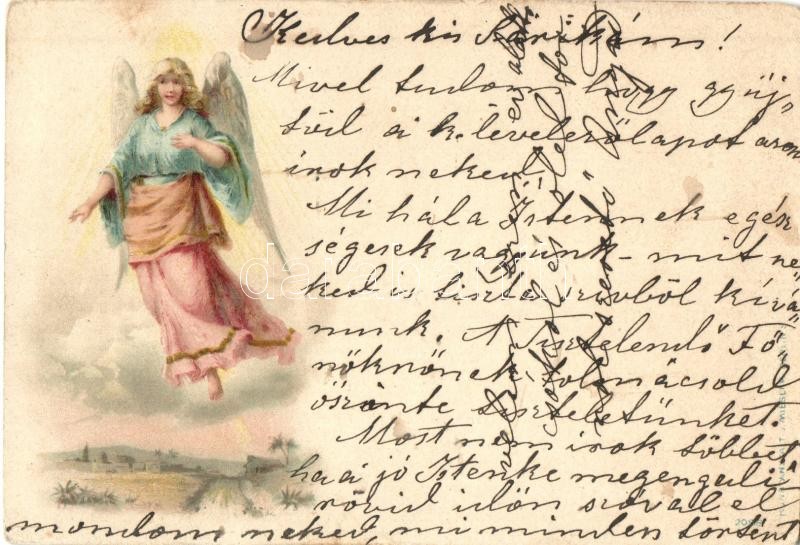 Kedves kis Sárikám!
Mivel tudom hogy gyüj-
töd a k. levelezőlapot azon
irok neked.
Mi hála Istennek egés
ségesek vagyunk mit ne
ked is tiszta szivből kívá
nunk. A Tisztelendő Fő
nöknőnek tolmácsold
őszinte tiszteletünket.
Most nem irok többet
ha a jó Istenke megengedi
rövid időn szóval el
mondom neked, mi minden történt
csókol és ölel
szerető